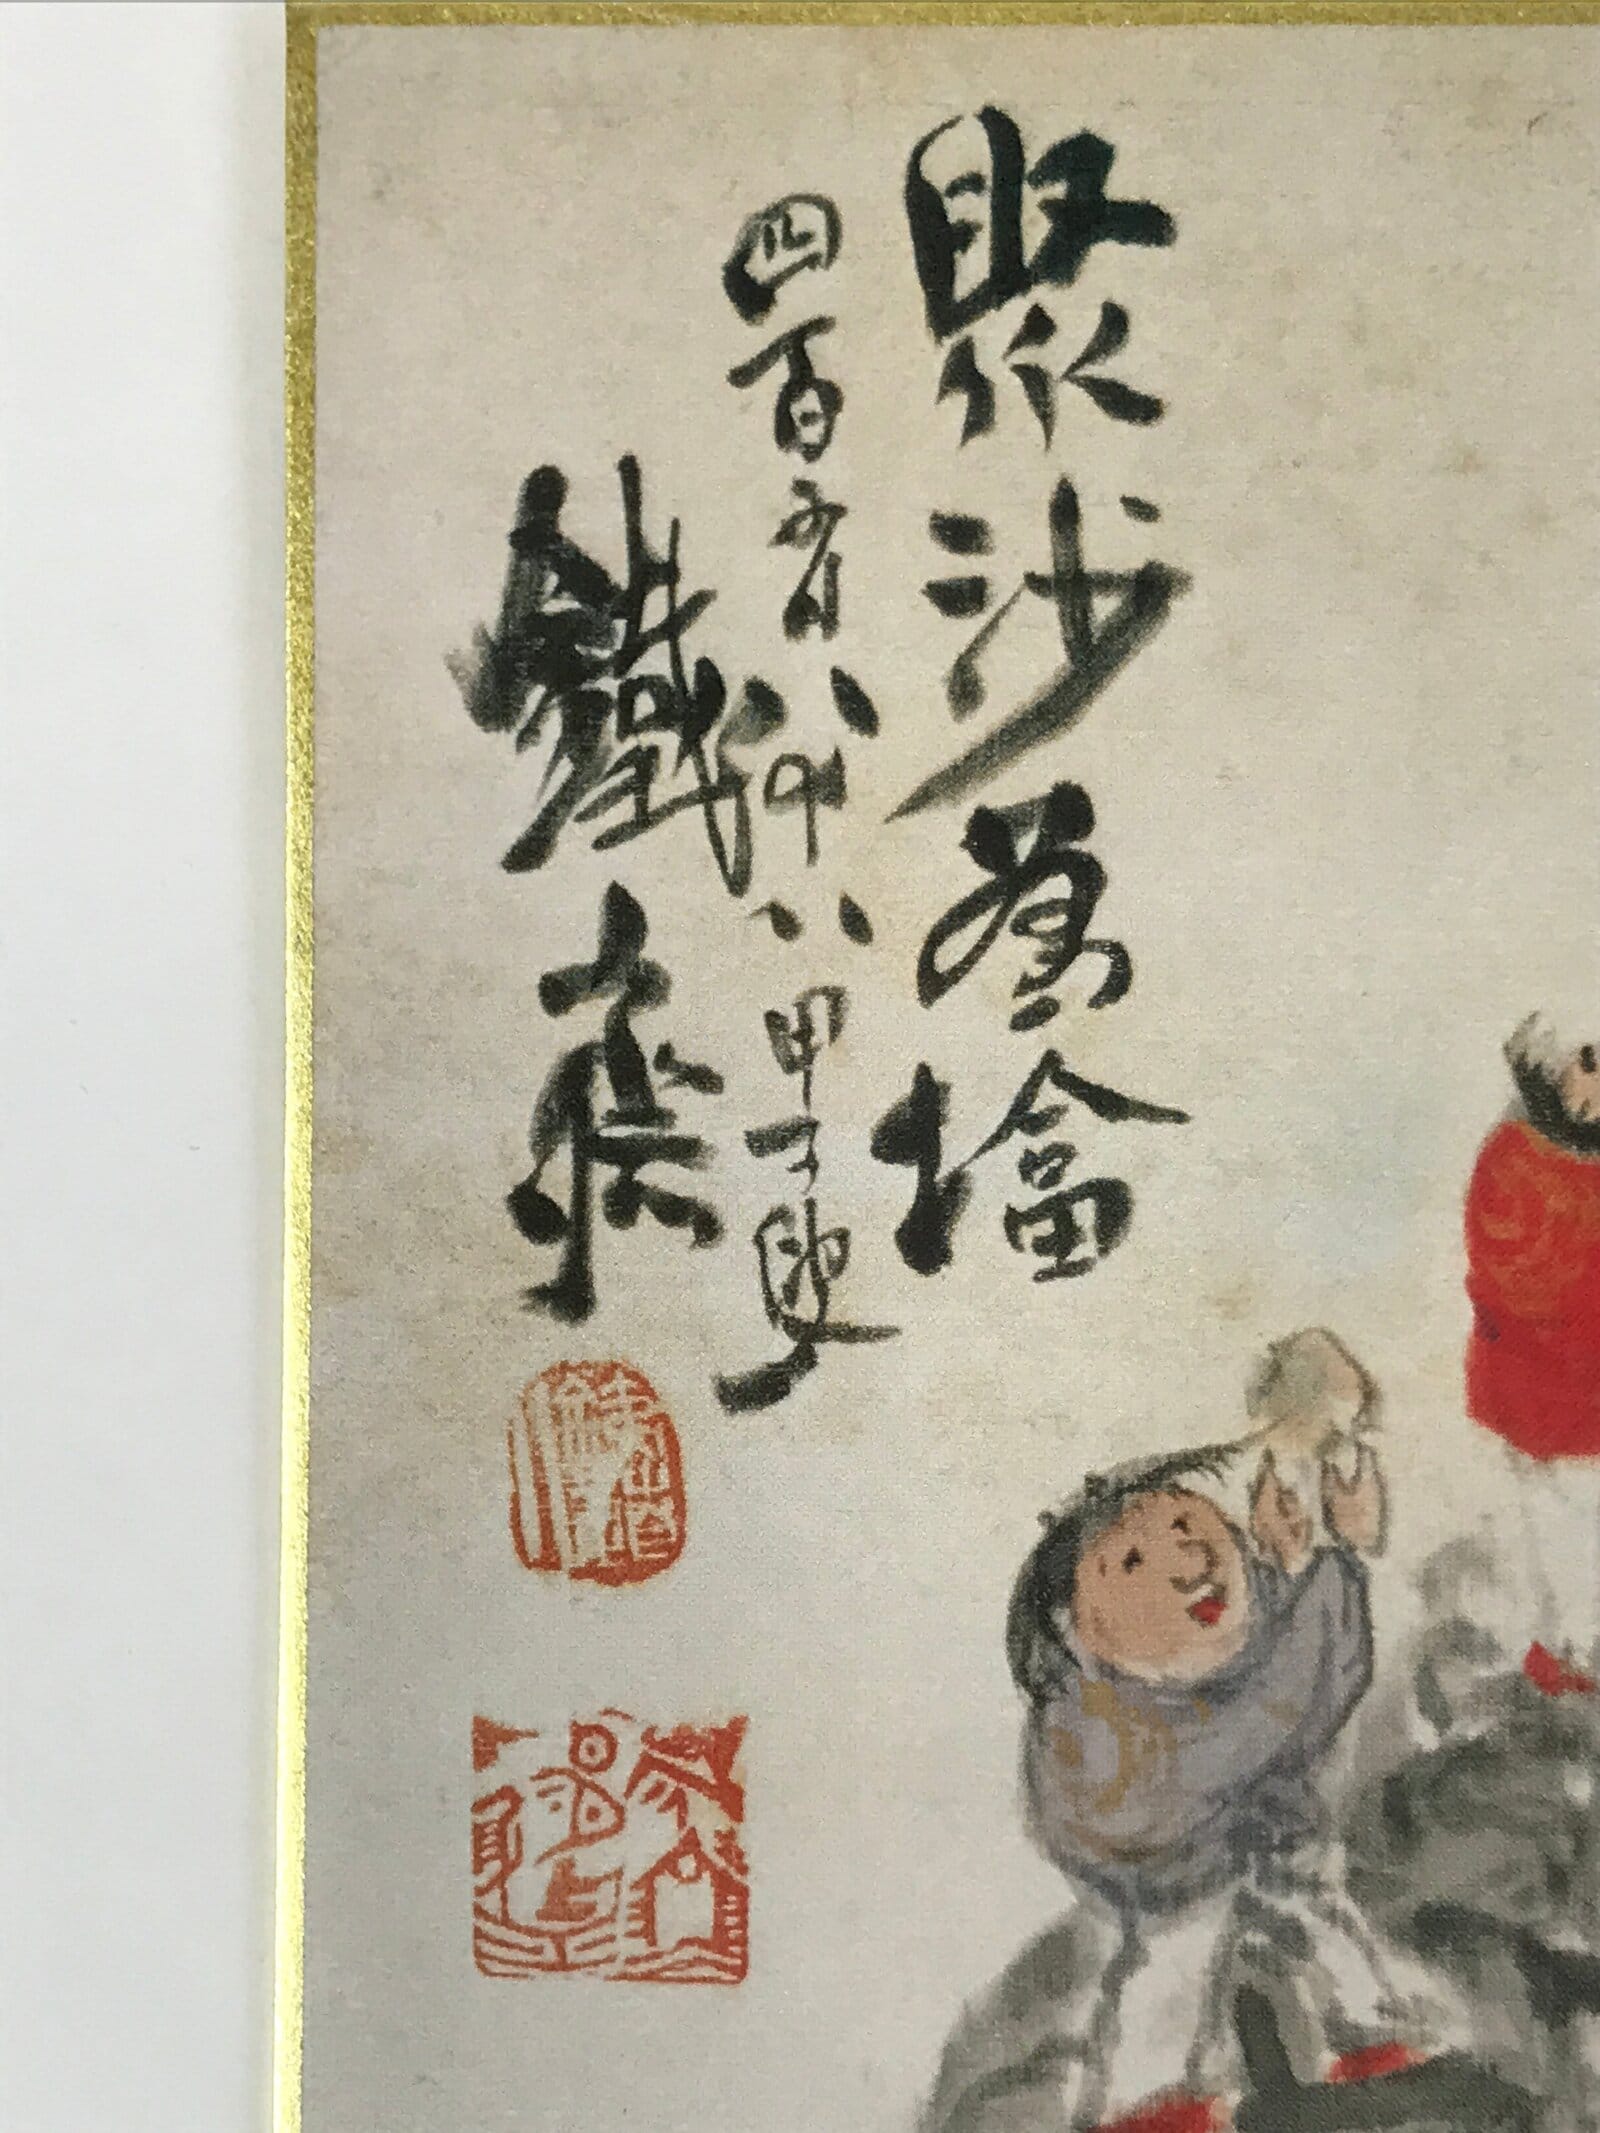 聚沙為墖
四百有八拾八甲子叟
鐵齋